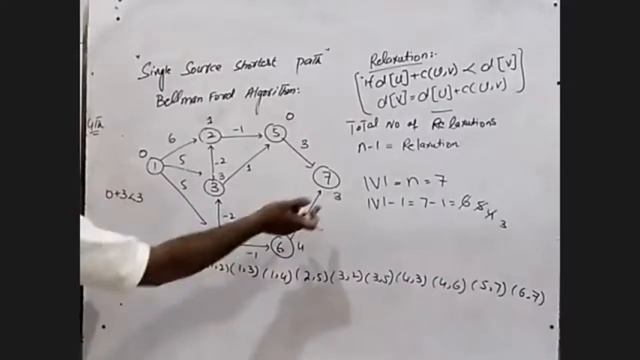 "Single Source Shortest path"
Bellman Ford Algorithm:
Relaxation:-
if d[u]+c(u,v) < d[v]
d[v]=d[u]+c(u,v)
Total No of Relaxations
n-1 = Relaxation
|V| = n = 7
|V|-1 = 7-1 = 6 5 4 3
4th
0+3<3
0 1
1 2
0 5
3 3
7 3
6 4
6 5 5
-1 3
-2 1
-2 -1
,2) (1,3) (1,4) (2,5) (3,2) (3,5) (4,3) (4,6) (5,7) (6,7)